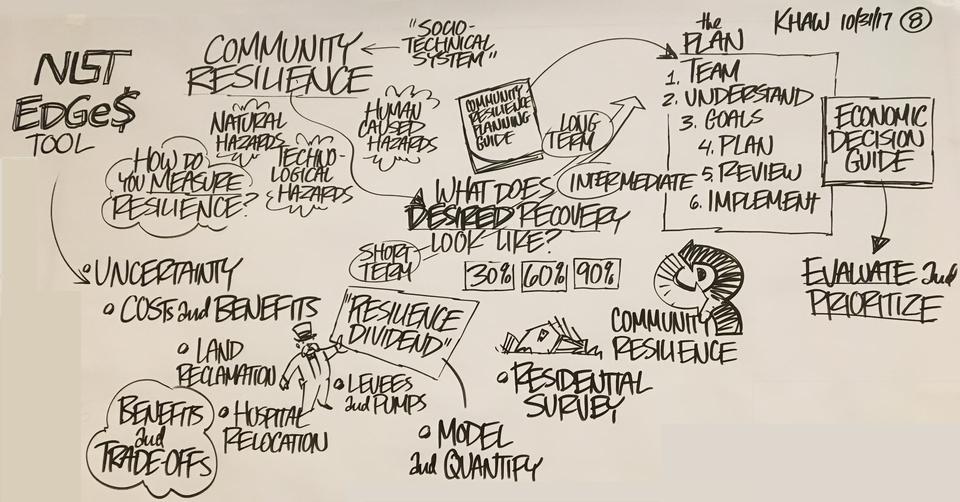 KHAW 10/31/17 8
NIST
EDGe$
TOOL
COMMUNITY
RESILIENCE
"SOCIO-
TECHNICAL
SYSTEM"
NATURAL
HAZARDS
TECHNO-
LOGICAL
HAZARDS
HUMAN
CAUSED
HAZARDS
HOW DO
YOU MEASURE
RESILIENCE?
COMMUNITY
RESILIENCE
PLANNING
GUIDE
the
PLAN
1. TEAM
2. UNDERSTAND
3. GOALS
4. PLAN
5. REVIEW
6. IMPLEMENT
ECONOMIC
DECISION
GUIDE
EVALUATE and
PRIORITIZE
WHAT DOES
DESIRED RECOVERY
LOOK LIKE?
SHORT
TERM
INTERMEDIATE
LONG
TERM
30% 60% 90%
UNCERTAINTY
COSTS and BENEFITS
LAND
RECLAMATION
HOSPITAL
RELOCATION
LEVEES
and PUMPS
BENEFITS
and
TRADE-OFFS
"RESILIENCE
DIVIDEND"
MODEL
and QUANTIFY
COMMUNITY
RESILIENCE
RESIDENTIAL
SURVEY